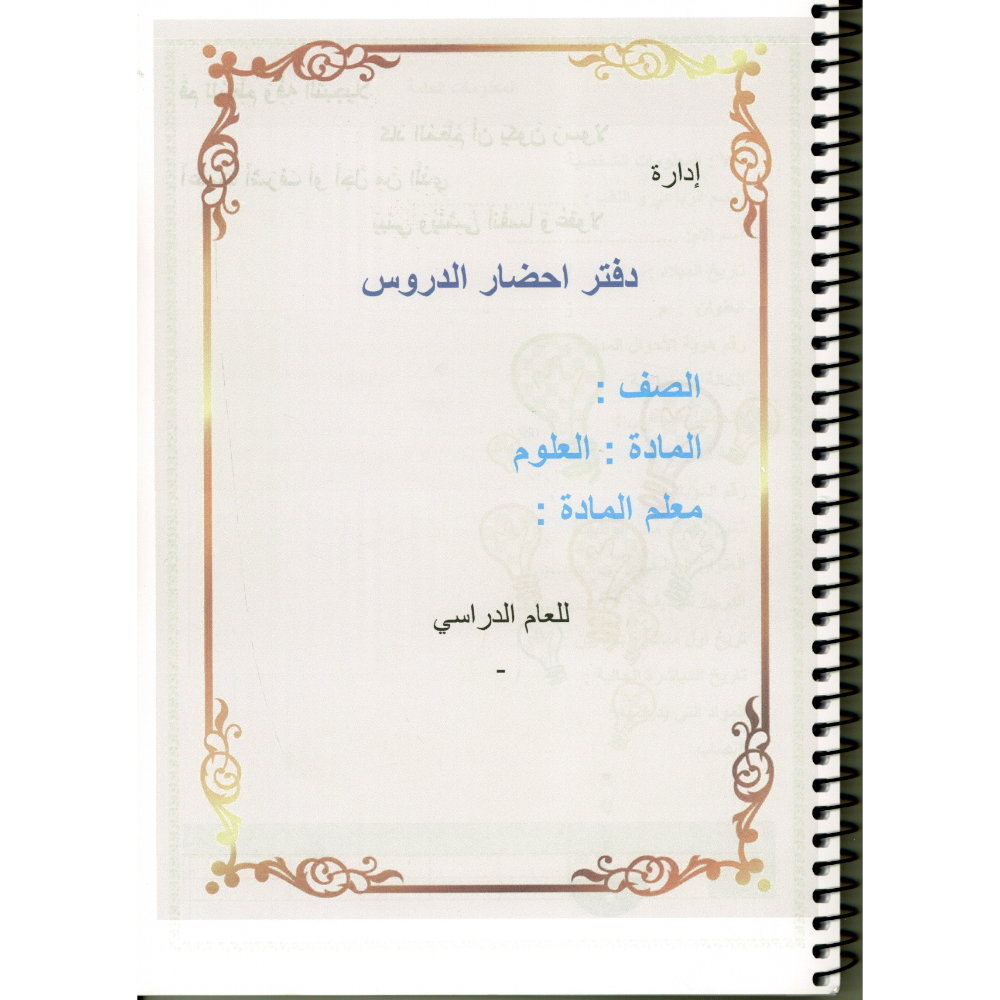 إدارة
دفتر احضار الدروس
الصف :
المادة : العلوم
معلم المادة :
للعام الدراسي
-